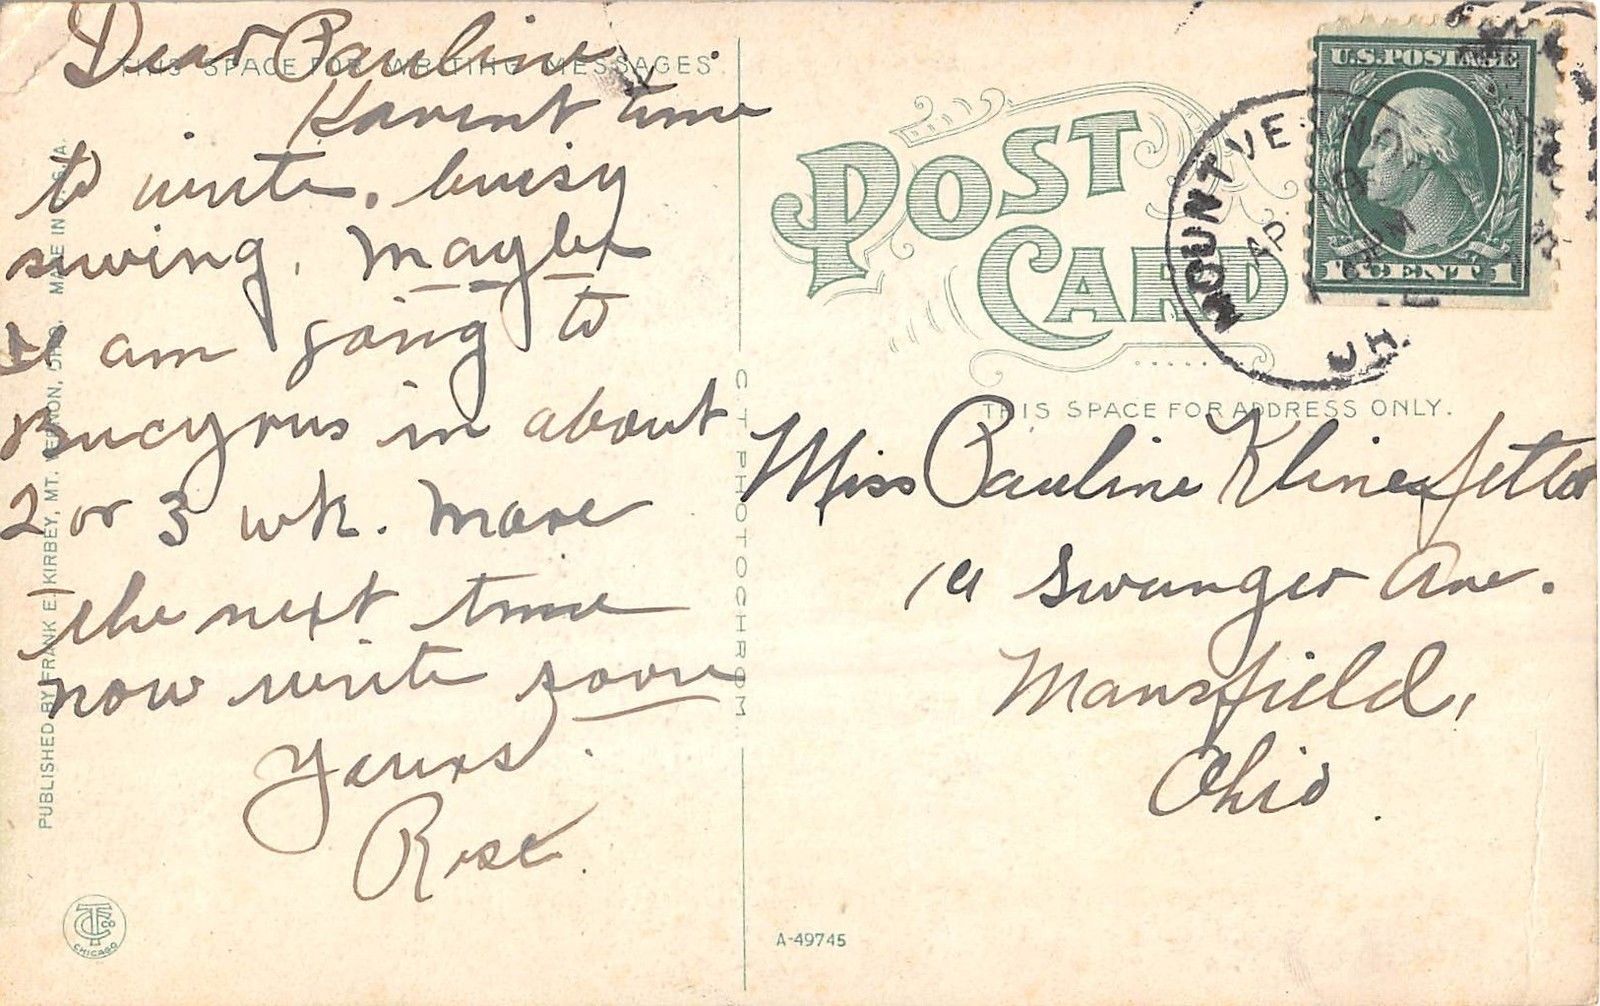 THIS SPACE FOR WRITING MESSAGES.
Dear Pauline
Havent time
to write. buisy
suwing. Maybe
I am going to
Bucyrus in about
2 or 3 wk. More
the next time
now write soon
Yours
Rose.
PUBLISHED BY FRANK E. KIRBEY, MT. VERNON, OHIO. MADE IN U.S.A.
C. T. PHOTOCHROM.
CHICAGO
POST
CARD
U.S. POSTAGE
1 CENT 1
MOUNT VERNON
AP
OH.
THIS SPACE FOR ADDRESS ONLY.
Miss Pauline Klinefelter
Swanger Ave.
Mansfield,
Ohio.
A-49745